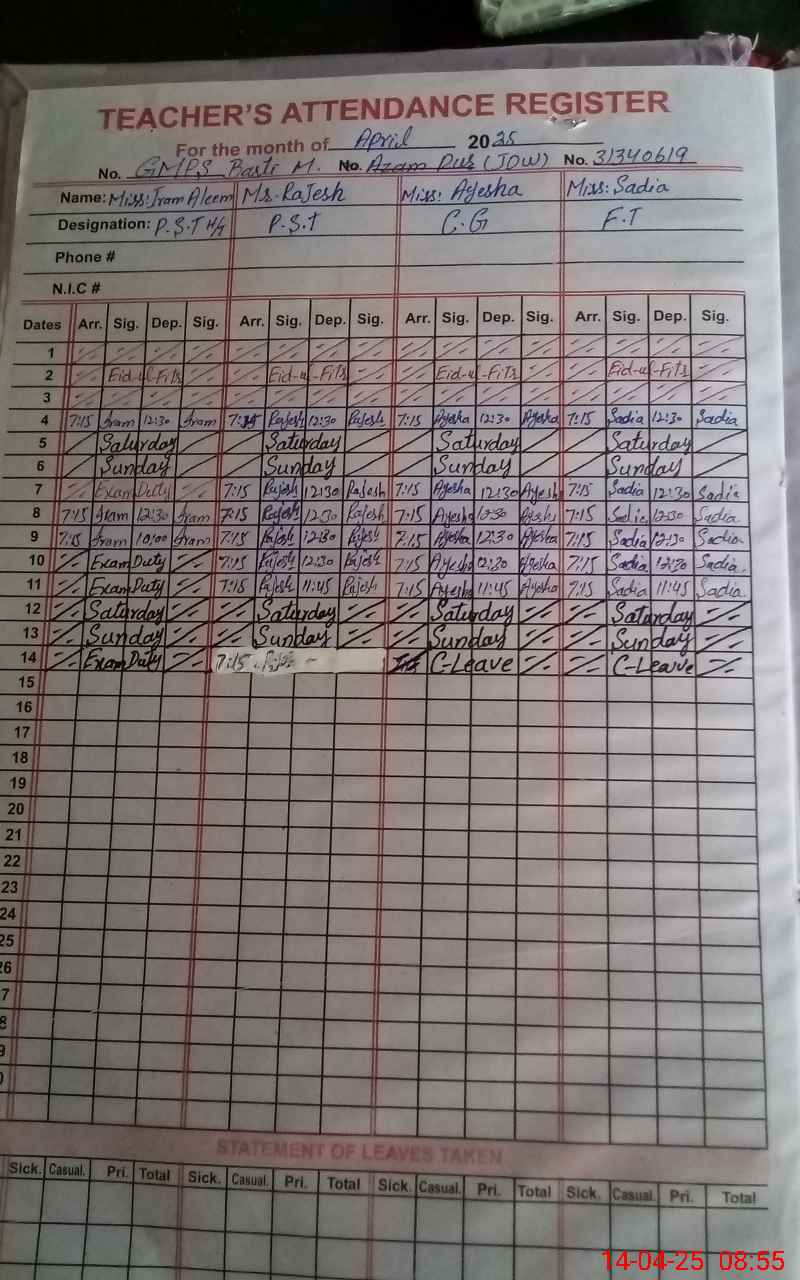 TEACHER'S ATTENDANCE REGISTER
For the month of April 2025
No. GMPS Basti M. No. Azam Pur (JDW) No. 31340619
Name: Miss: Iram Aleem Mr. Rajesh Miss: Ayesha Miss: Sadia
Designation: P.S.T H/T P.S.T C.G F.T
Phone #
N.I.C #
Dates Arr. Sig. Dep. Sig. Arr. Sig. Dep. Sig. Arr. Sig. Dep. Sig. Arr. Sig. Dep. Sig.
1
2 Eid-ul-Fitr Eid-ul-Fitr Eid-ul-Fitr Eid-ul-Fitr
3
4 7:15 Iram 12:30 Iram 7:15 Rajesh 12:30 Rajesh 7:15 Ayesha 12:30 Ayesha 7:15 Sadia 12:30 Sadia
5 Saturday Saturday Saturday Saturday
6 Sunday Sunday Sunday Sunday
7 Exam Duty 7:15 Rajesh 12:30 Rajesh 7:15 Ayesha 12:30 Ayesha 7:15 Sadia 12:30 Sadia
8 7:15 Iram 12:30 Iram 7:15 Rajesh 12:30 Rajesh 7:15 Ayesha 12:30 Ayesha 7:15 Sadia 12:30 Sadia
9 7:15 Iram 10:00 Iram 7:15 Rajesh 12:30 Rajesh 7:15 Ayesha 12:30 Ayesha 7:15 Sadia 12:30 Sadia
10 Exam Duty 7:15 Rajesh 12:30 Rajesh 7:15 Ayesha 12:30 Ayesha 7:15 Sadia 12:30 Sadia.
11 Exam Duty 7:15 Rajesh 11:45 Rajesh 7:15 Ayesha 11:45 Ayesha 7:15 Sadia 11:45 Sadia.
12 Saturday Saturday Saturday Saturday
13 Sunday Sunday Sunday Sunday
14 Exam Duty 7:15 C-Leave C-Leave
15
16
17
18
19
20
21
22
23
24
25
26
7
8
9
0
STATEMENT OF LEAVES TAKEN
Sick. Casual. Pri. Total Sick. Casual. Pri. Total Sick. Casual. Pri. Total Sick. Casual. Pri. Total
14-04-25 08:55